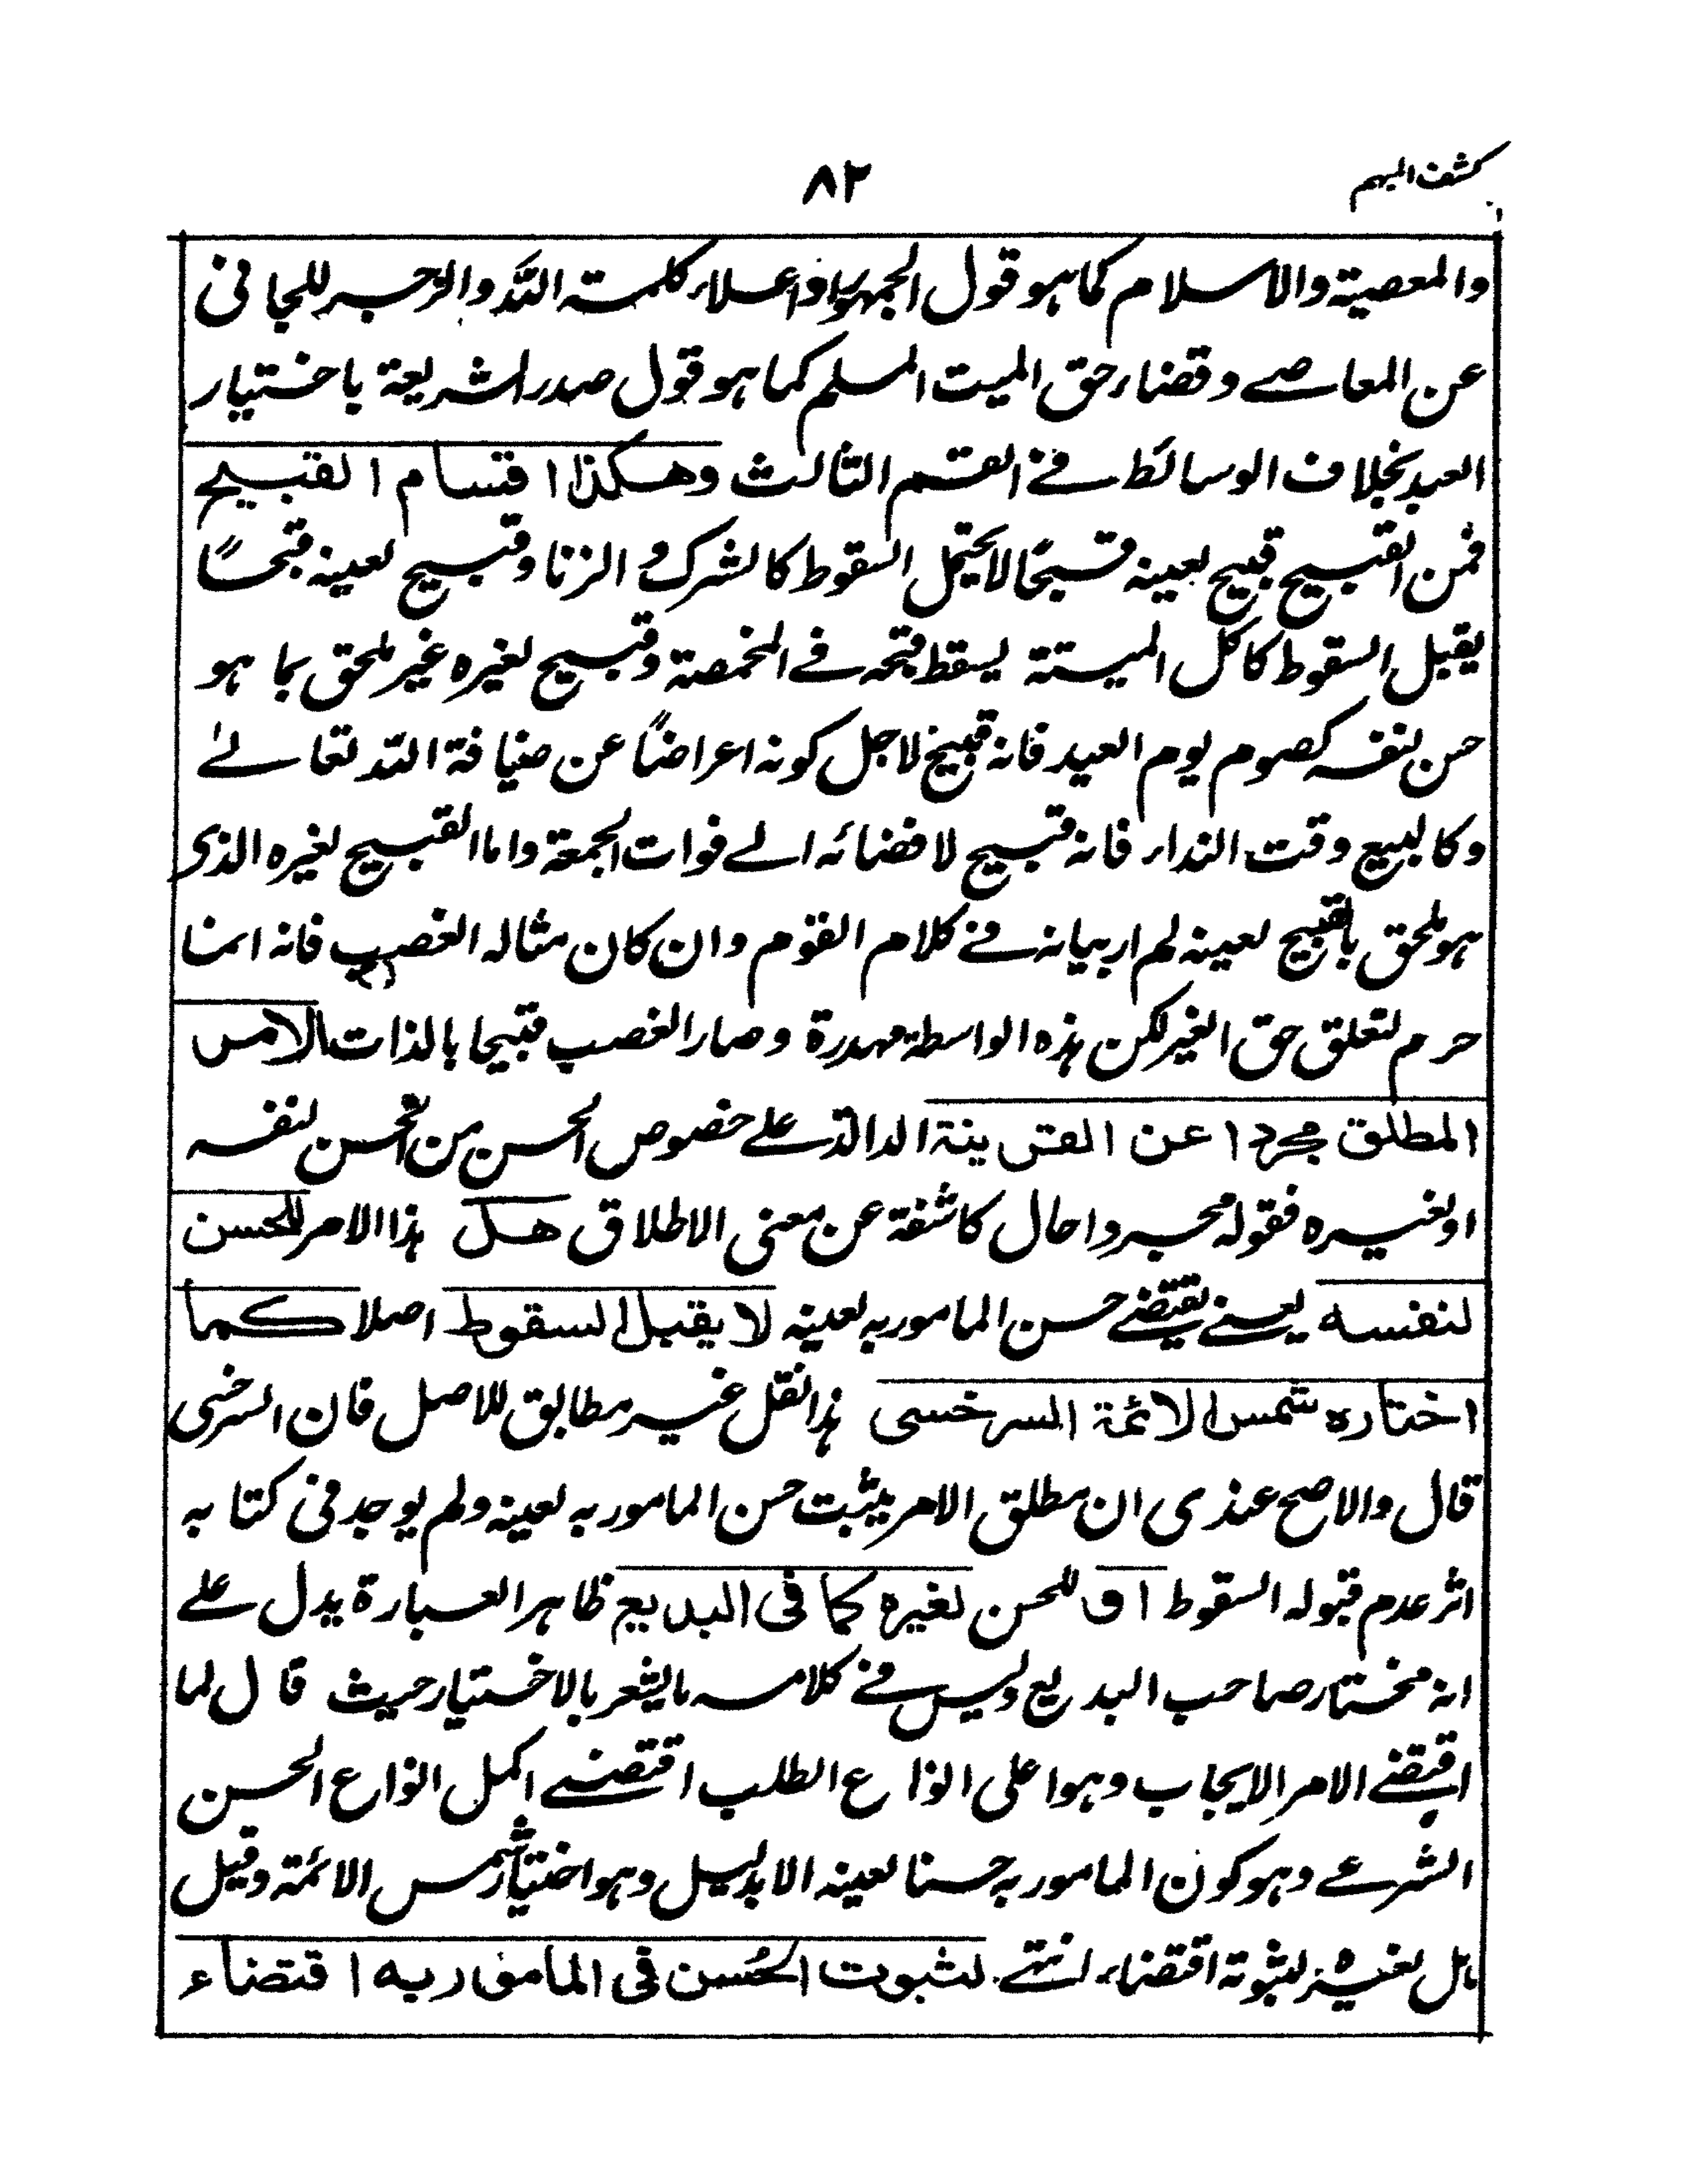 كشف المبهم
٨٢
والمعصية والاسلام كما هو قول الجمهور او اعلاء كلمة الله والزجر للجانى
عن المعاصے وقضاء حق الميت المسلم كما هو قول صدر الشريعة باختيار
العبد بخلاف الوسائط فے القسم الثالث وهكذا اقسام القبيح
فمن القبيح قبيح لعينه قبيحًا لا يحتمل السقوط كالشرك والزنا وقبيح لعينه قبحًا
يقبل السقوط كاكل الميتة يسقط قبحه فے المخمصة وقبيح لغيره غير ملحق بما هو
حسن لنفسه كصوم يوم العيد فانه قبيح لاجل كونه اعراضًا عن ضيافة الله تعالےٰ
وكالبيع وقت النداء فانه قبيح لافضائه الے فوات الجمعة واما القبيح لغيره الذى
هو ملحق بالقبيح لعينه لم ار بيانه فے كلام القوم وان كان مثاله الغصب فانه انما
حرم لتعلق حق الغير لكن هذه الواسطة مهدرة وصار الغصب قبيحا بالذات الامر
المطلق مجردا عن القرينة الدالة علے خصوص الحسن من الحسن لنفسه
او لغيره فقوله مجردا حال كاشفة عن معنى الاطلاق هل هذا الامر للحسن
لنفسه يعنے يقتضے حسن المامور به لعينه لا يقبل السقوط اصلا كما
اختاره شمس الائمة السرخسى هذا نقل غير مطابق للاصل فان السرخسى
قال والاصح عندى ان مطلق الامر يثبت حسن المامور به لعينه ولم يوجد فى كتابه
اثر عدم قبوله السقوط او للحسن لغيره كما فى البديع ظاهر العبارة يدل علے
انه مختار صاحب البديع وليس فے كلامه ما يشعر بالاختيار حيث قال لما
اقتضے الامر الايجاب وهو اعلى انواع الطلب اقتضے اكمل انواع الحسن
الشرعے وهو كون المامور به حسنا لعينه الا بدليل وهو اختيار شمس الائمة وقيل
بل لغيره لثبوته اقتضاء انتهے لثبوت الحُسن فى المامور به اقتضاء